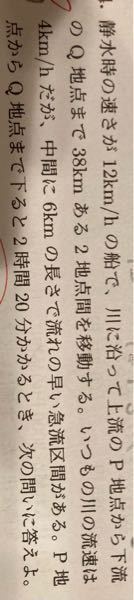 静水時の速さが12km/hの船で、川に沿って上流のP地点から下流
のQ地点まで38kmある2地点間を移動する。いつもの川の流速は
4km/hだが、中間に6kmの長さで流れの早い急流区間がある。P地
点からQ地点まで下ると2時間20分かかるとき、次の問いに答えよ。